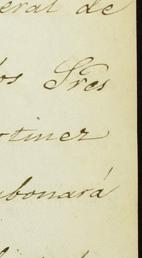 eral de
os Sres
rtinez
abonará